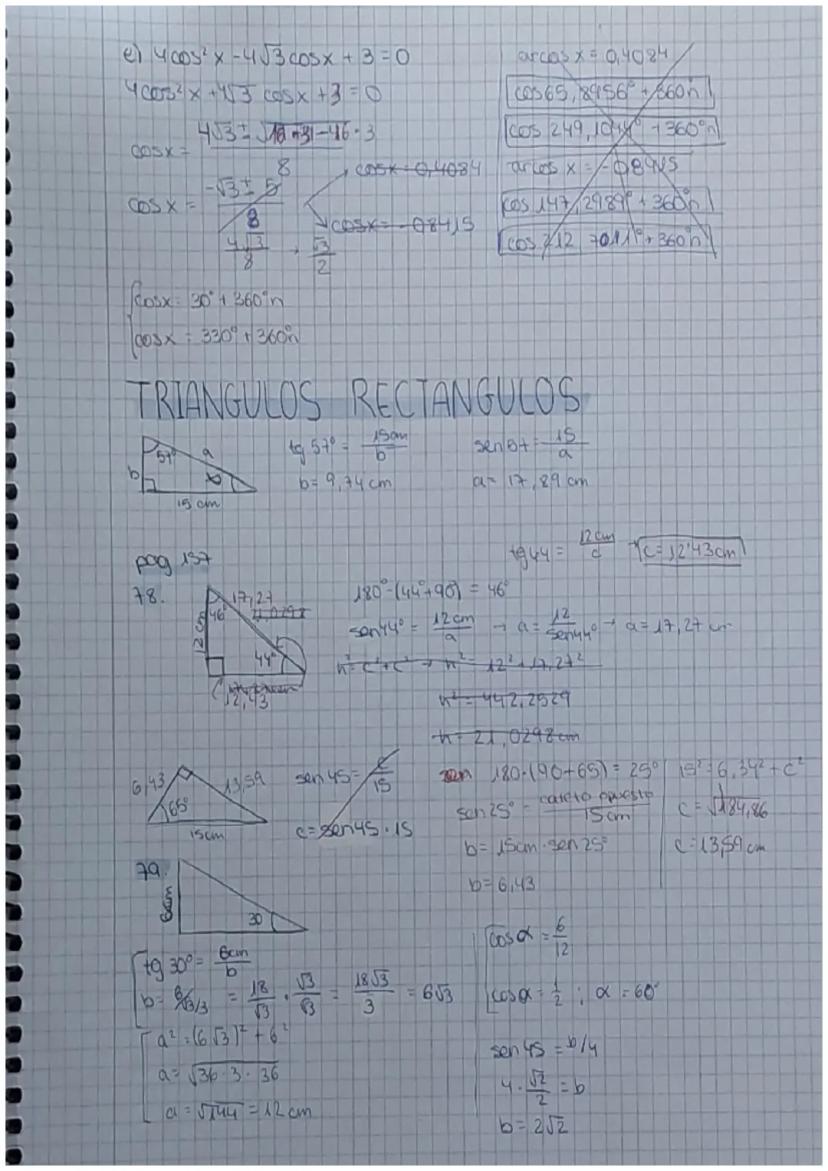 e) 4cos²x - 4√3 cosx + 3 = 0
4cos²x + 4√3 cosx + 3 = 0
cosx =
8
cosx = -√3 ± 5 / 8
cosx = 0,4084
cosx = -0,8415
4√3/8 , √3/2
cosx = 30° + 360°n
cosx = 330° + 360°n
arcos x = 0,4084
cos 65,8956° + 360n
cos 249,1044° + 360°n
arcos x =
cos 147,2989° + 360°n
cos 212,7011° + 360°n
TRIANGULOS RECTANGULOS
57° a
b
15 cm
tg 57° = 15cm/b
b = 9,74 cm
15/a
a = 17,89 cm
pag 137
tg 44 = 12cm/c
c = 12'43cm
78.
17,27
46°
44°
12,43
180° - (44° + 90) = 46°
sen 44° = 12cm/a → a = 12/sen44° → a = 17,27 cm
h² = c² + c² → h² = 12² + 17,27²
h² = 442,2529
h = 21,0292cm
6,43 13,59
65°
15cm
sen 45 = c/15
c = sen45 · 15
180 - (90 + 65) = 25°
sen 25° = cateto opuesto / 15cm
b = 15cm · sen 25°
b = 6,43
15² = 6,34² + c²
c = √184,86
c = 13,59 cm
79.
6cm
30
tg 30° = 6cm/b
b = 6/√3/3 = 18/√3 · √3/√3 = 18√3/3 = 6√3
a² = (6√3)² + 6²
a = √36 · 3 · 36
a = √144 = 12 cm
cos α = 6/12
cos α = 1/2 ; α = 60°
sen 45 = b/4
4 · √2/2 = b
b = 2√2